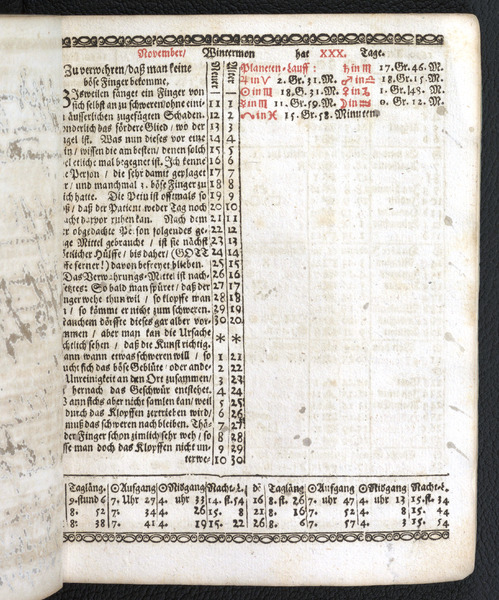 November/ Wintermon hat XXX. Tage.
Zu verwehren/ daß man keine
böse Finger bekomme.
Zweilen fänget ein Finger von
sich selbst an zu schweren/ ohne eini-
äusserlichen zugefügten Schaden.
sonderlich das fördere Glied/ wo der
Nagel ist. Was nun dieses vor eine
/ wissen die am besten/ denen solch
etliche mal begegnet ist. Ich kenne
Person/ die sehr damit geplaget
/ und manchmal böse Finger zu
hatte. Die Pein ist offtmals so
/ daß der Patient weder Tag noch
Nacht darvor ruhen kan. Nach dem
obgedachte Person folgendes ge-
Mittel gebrauchet/ ist sie nächst
Göttlicher Hülffe/ bis daher/ (GOTT
helffe ferner!) davon befreyet blieben.
Das Verwahrungs-Mittel ist nach-
gesetztes: So bald man spüret/ daß der
Finger wehe thun wil/ so klopffe man
/ so kömmt er nicht zum schweren.
dörffte dieses gar alber vor-
kommen/ aber man kan die Ursache
sehen/ daß die Kunst richtig.
Dann wann etwas schweren will/ so
sich das böse Geblüte/ oder ande-
Unreinigkeit an den Ort zusammen/
hernach das Geschwür entstehet.
Wann sichs aber nicht samlen kan/ weil
durch das Klopffen zertrieben wird/
muß das schweren nach bleiben. Thäte
der Finger schon zimlich sehr weh/ so
man doch das Klopffen nicht un-
terwe-
11 1
12 2
13 3
14 4
15 5
16 6
17 7
18 8
19 9
20 10
21 11
22 12
23 13
24 14
25 15
26 16
27 17
28 18
29 19
30 20
* *
1 21
2 22
3 23
4 24
5 25
6 26
7 27
8 28
9 29
10 30
Planeten-Lauff: ♄ in ♏ 17. Gr. 46. M.
♃ in ♈ 2. Gr. 31. M. ♂ in ♎ 18. Gr. 15. M.
☉ in ♏ 18. G. 31. M. ♀ in ♎ 1. Gr. 48. M.
☿ in ♏ 11. Gr. 59. M. ☽ in ♒ 0. Gr. 12. M.
in ♓ 15. Gr. 58. Minuten
Tagläng. ☉Aufgang ☉Nidgang Nacht-L. Tagläng ☉Aufgang ☉Nidgang Nacht-L.
9. stund 6 7. Uhr 27 4. uhr 33 14. st. 54 16 8. st. 26 7. uhr 47 4. uhr 13 15. st. 34
8. 52 7. 34 4. 26 15. 8 21 8. 16 7. 52 4. 8 15. 44
8. 38 7. 41 4. 19 15. 22 26 8. 6 7. 57 4. 3 15. 54